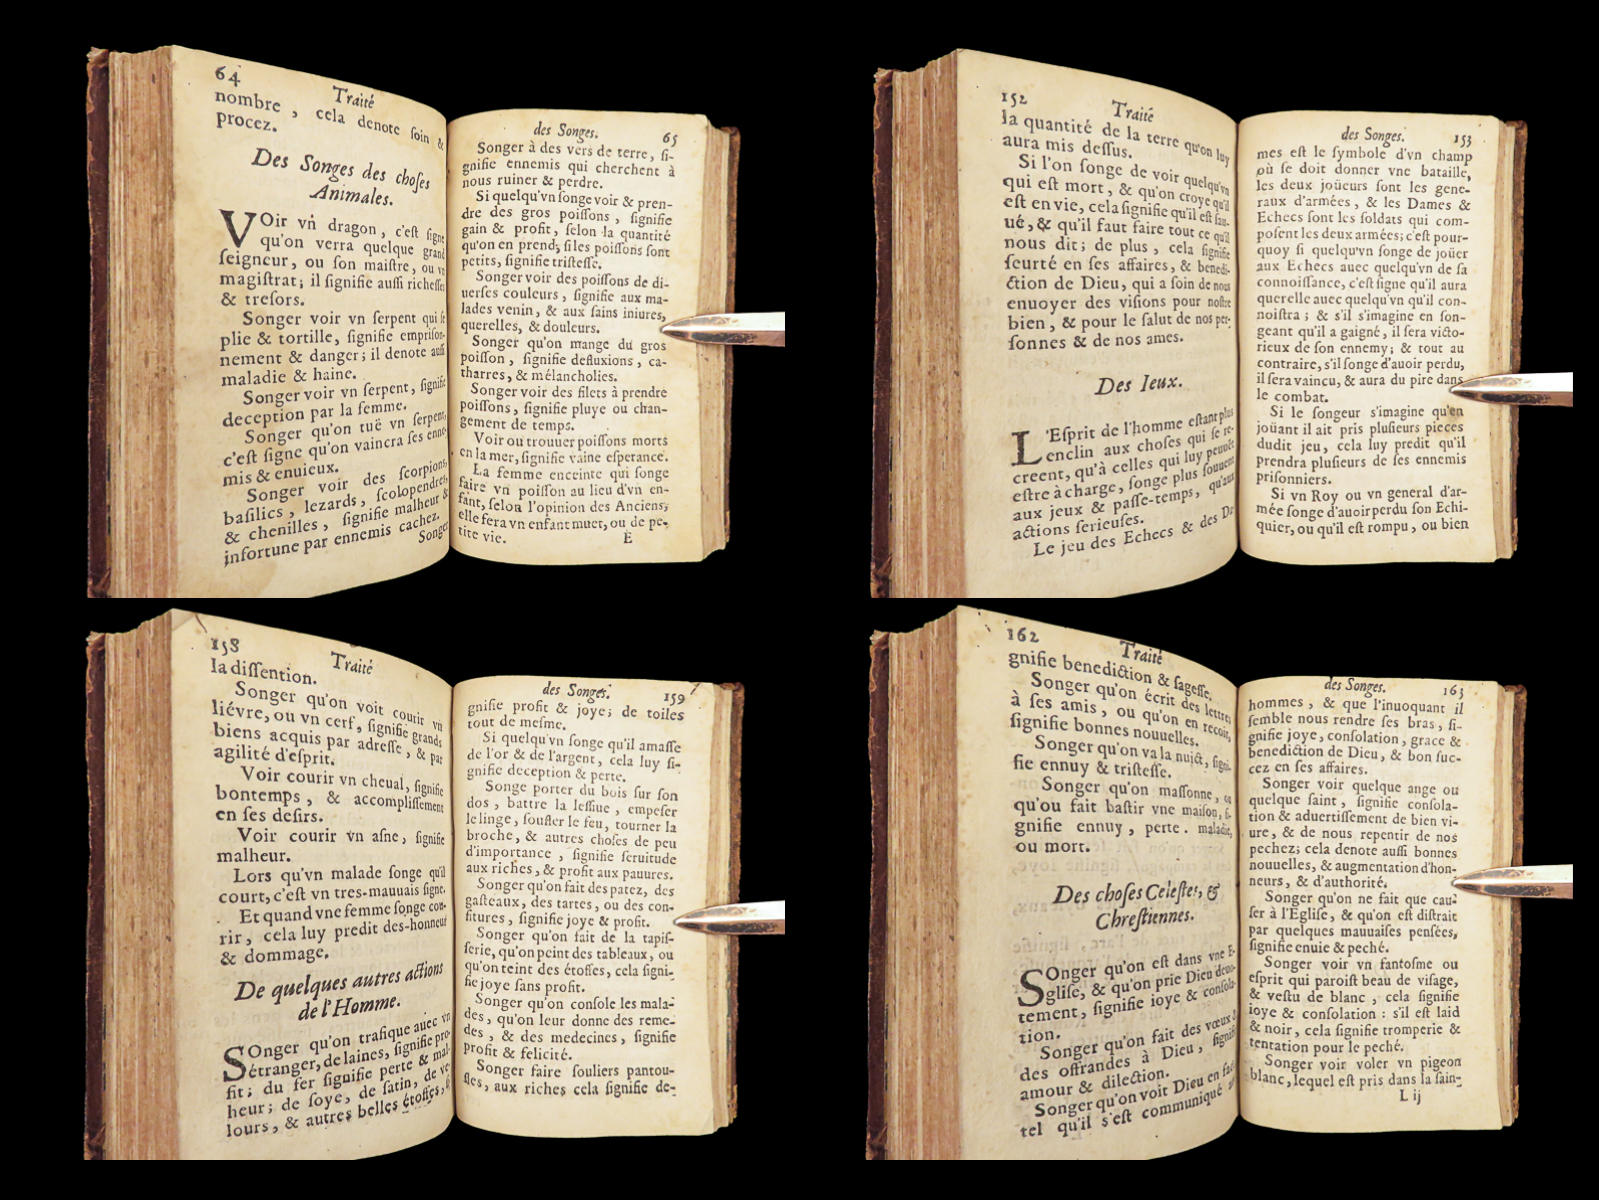 64
Traité
nombre , cela denote ſoin &
procez.
Des Songes des choſes
Animales.
VOir vn dragon , c'eſt ſigne
qu'on verra quelque grand
ſeigneur, ou ſon maiſtre, ou vn
magiſtrat; il ſignifie auſſi richeſſes
& treſors.
Songer voir vn ſerpent qui ſe
plie & tortille, ſignifie empriſon-
nement & danger; il denote auſſi
maladie & haine.
Songer voir vn ſerpent, ſignifie
deception par la femme.
Songer qu'on tuë vn ſerpent,
c'eſt ſigne qu'on vaincra ſes enne-
mis & enuieux.
Songer voir des ſcorpions,
baſilics , lezards , ſcolopendres,
& chenilles , ſignifie malheur &
infortune par ennemis cachez.
Songer
des Songes.
65
Songer à des vers de terre, ſi-
gnifie ennemis qui cherchent à
nous ruiner & perdre.
Si quelqu'vn ſonge voir & pren-
dre des gros poiſſons , ſignifie
gain & profit, ſelon la quantité
qu'on en prend; ſi les poiſſons ſont
petits, ſignifie triſteſſe.
Songer voir des poiſſons de di-
uerſes couleurs , ſignifie aux ma-
lades venin, & aux ſains iniures,
querelles, & douleurs.
Songer qu'on mange du gros
poiſſon , ſignifie defluxions , ca-
tharres, & mélancholies.
Songer voir des filets à prendre
poiſſons, ſignifie pluye ou chan-
gement de temps.
Voir ou trouuer poiſſons morts
en la mer, ſignifie vaine eſperance.
La femme enceinte qui ſonge
faire vn poiſſon au lieu d'vn en-
fant, ſelon l'opinion des Anciens,
elle fera vn enfant muet, ou de pe-
tite vie.
E
152
Traité
la quantité de la terre qu'on luy
aura mis deſſus.
Si l'on ſonge de voir quelqu'vn
qui eſt mort , & qu'on croye qu'il
eſt en vie, cela ſignifie qu'il eſt ſau-
ué, & qu'il faut faire tout ce qu'il
nous dit; de plus , cela ſignifie
ſeurté en ſes affaires, & benedi-
ction de Dieu, qui a ſoin de nous
enuoyer des viſions pour noſtre
bien , & pour le ſalut de nos per-
ſonnes & de nos ames.
Des Ieux.
L'Eſprit de l'homme eſtant plus
enclin aux choſes qui ſe re-
creent, qu'à celles qui luy peuuent
eſtre à charge, ſonge plus ſouuent
aux jeux & paſſe-temps, qu'aux
actions ſerieuſes.
Le jeu des Echecs & des Da-
des Songes.
153
mes eſt le ſymbole d'vn champ
où ſe doit donner vne bataille,
les deux joüeurs ſont les gene-
raux d'armées , & les Dames &
Echecs ſont les ſoldats qui com-
poſent les deux armées; c'eſt pour-
quoy ſi quelqu'vn ſonge de joüer
aux Echecs auec quelqu'vn de ſa
connoiſſance, c'eſt ſigne qu'il aura
querelle auec quelqu'vn qu'il con-
noiſtra ; & s'il s'imagine en ſon-
geant qu'il a gaigné, il ſera victo-
rieux de ſon ennemy; & tout au
contraire, s'il ſonge d'auoir perdu,
il ſera vaincu, & aura du pire dans
le combat.
Si le ſongeur s'imagine qu'en
joüant il ait pris pluſieurs pieces
dudit jeu, cela luy predit qu'il
prendra pluſieurs de ſes ennemis
priſonniers.
Si vn Roy ou vn general d'ar-
mée ſonge d'auoir perdu ſon Echi-
quier, ou qu'il eſt rompu , ou bien
158
Traité
la diſſention.
Songer qu'on voit courir vn
liévre, ou vn cerf, ſignifie grands
biens acquis par adreſſe, & par
agilité d'eſprit.
Voir courir vn cheual, ſignifie
bontemps , & accompliſſement
en ſes deſirs.
Voir courir vn aſne, ſignifie
malheur.
Lors qu'vn malade ſonge qu'il
court, c'eſt vn tres-mauuais ſigne.
Et quand vne femme ſonge cou-
rir, cela luy predit des-honneur
& dommage.
De quelques autres actions
de l'Homme.
SOnger qu'on trafique auec vn
étranger, de laines, ſignifie pro-
fit; du fer ſignifie perte & mal-
heur; de ſoye, de ſatin, de ve-
lours, & autres belles étoffes, ſi-
des Songes.
159
gnifie profit & joye; de toiles
tout de meſme.
Si quelqu'vn ſonge qu'il amaſſe
de l'or & de l'argent, cela luy ſi-
gnifie deception & perte.
Songe porter du bois ſur ſon
dos , battre la leſſiue , empeſer
le linge, ſouffler le feu, tourner la
broche, & autres choſes de peu
d'importance , ſignifie ſeruitude
aux riches, & profit aux pauures.
Songer qu'on fait des patez, des
gaſteaux, des tartes, ou des con-
fitures, ſignifie joye & profit.
Songer qu'on fait de la tapiſ-
ſerie, qu'on peint des tableaux, ou
qu'on teint des étoffes, cela ſigni-
fie joye ſans profit.
Songer qu'on conſole les mala-
des , qu'on leur donne des reme-
des , & des medecines , ſignifie
profit & felicité.
Songer faire ſouliers pantou-
fles, aux riches cela ſignifie de-
162
Traité
gnifie benediction & ſageſſe.
Songer qu'on écrit des lettres
à ſes amis, ou qu'on en reçoit,
ſignifie bonnes nouuelles.
Songer qu'on va la nuict, ſigni-
fie ennuy & triſteſſe.
Songer qu'on maſſonne, ou
qu'ou fait baſtir vne maiſon, ſi-
gnifie ennuy , perte . maladie,
ou mort.
Des choſes Celeſtes, &
Chreſtiennes.
SOnger qu'on eſt dans vne E-
gliſe, & qu'on prie Dieu deuo-
tement, ſignifie ioye & conſola-
tion.
Songer qu'on fait des vœux &
des offrandes à Dieu , ſignifie
amour & dilection.
Songer qu'on voit Dieu en face
tel qu'il s'eſt communiqué aux
des Songes.
163
hommes , & que l'inuoquant il
ſemble nous rendre ſes bras , ſi-
gnifie joye, conſolation, grace &
benediction de Dieu, & bon ſuc-
cez en ſes affaires.
Songer voir quelque ange ou
quelque ſaint , ſignifie conſola-
tion & aduertiſſement de bien vi-
ure, & de nous repentir de nos
pechez; cela denote auſſi bonnes
nouuelles, & augmentation d'hon-
neurs, & d'authorité.
Songer qu'on ne fait que cau-
ſer à l'Egliſe, & qu'on eſt diſtrait
par quelques mauuaiſes penſées,
ſignifie enuie & peché.
Songer voir vn fantoſme ou
eſprit qui paroiſt beau de viſage,
& veſtu de blanc , cela ſignifie
ioye & conſolation : s'il eſt laid
& noir, cela ſignifie tromperie &
tentation pour le peché.
Songer voir voler vn pigeon
blanc, lequel eſt pris dans la ſain-
L ij